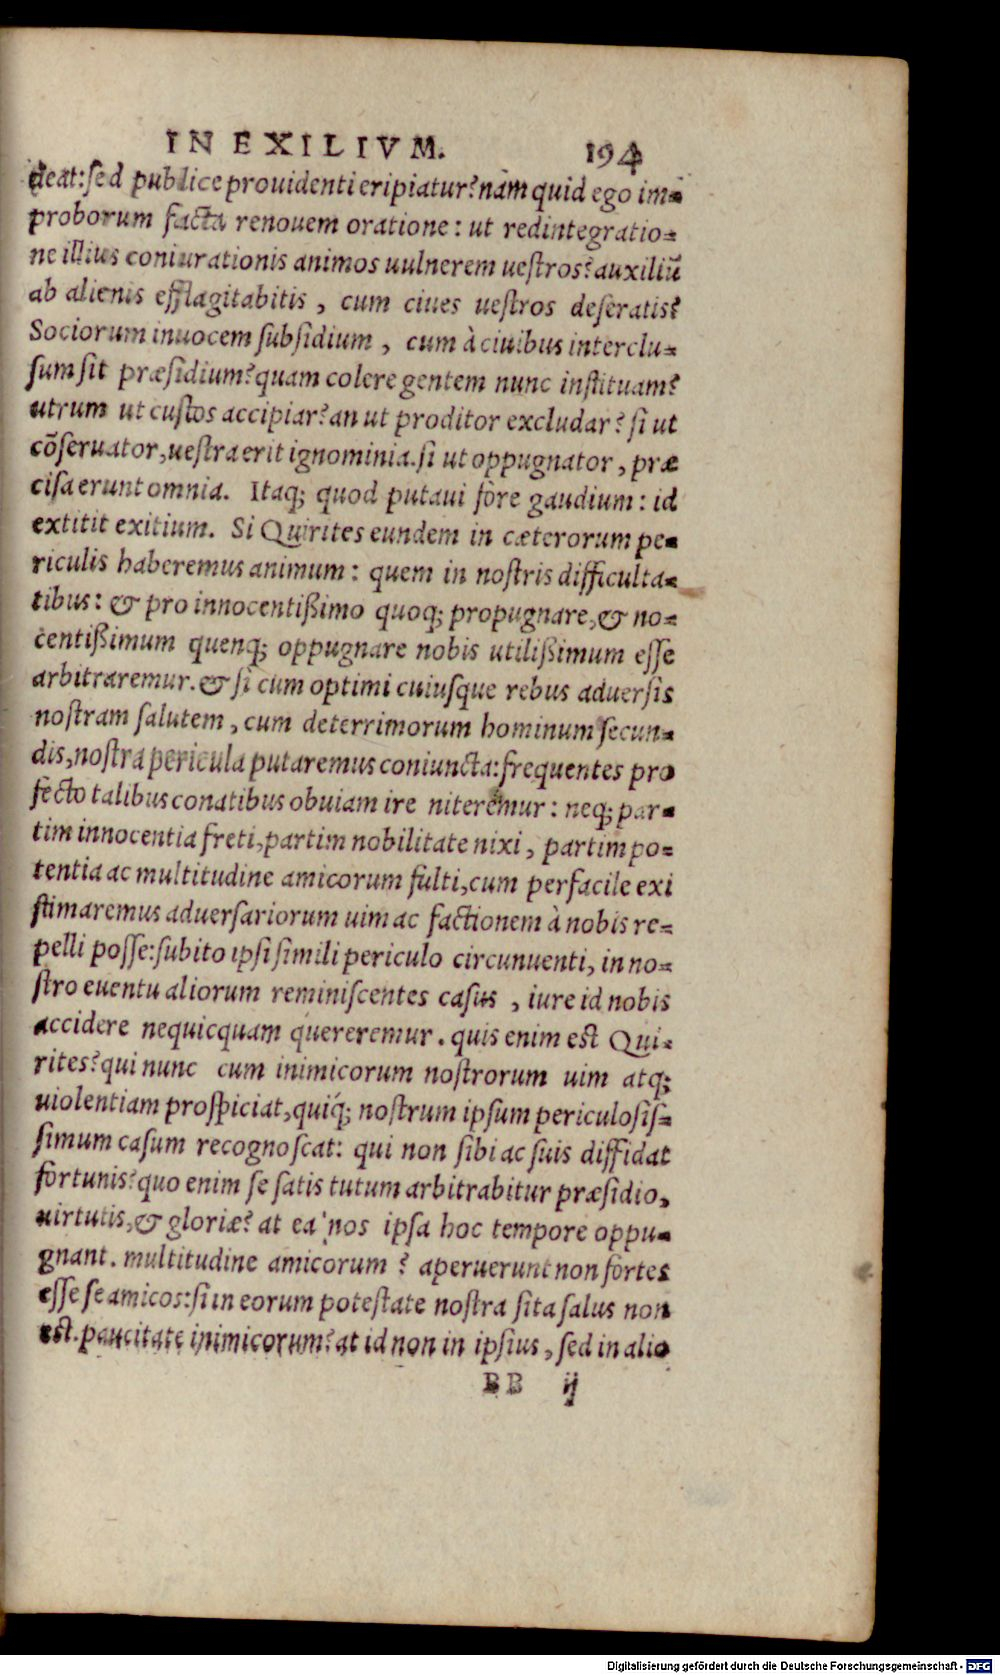 IN EXILIVM. 194
deat: sed publice prouidenti eripiatur? nam quid ego im=
proborum facta renouem oratione: ut redintegratio=
ne illius coniurationis animos uulnerem uestros? auxiliũ
ab alienis efflagitabitis, cum ciues uestros deseratis?
Sociorum inuocem subsidium, cum à ciuibus interclu=
sum sit præsidium? quam colere gentem nunc instituam?
utrum ut custos accipiar? an ut proditor excludar? si ut
cõseruator, uestra erit ignominia. si ut oppugnator, præ
cisa erunt omnia. Itaq; quod putaui fore gaudium: id
extitit exitium. Si Quirites eundem in cæterorum pe=
riculis haberemus animum: quem in nostris difficulta=
tibus: & pro innocentißimo quoq; propugnare, & no=
centißimum quenq; oppugnare nobis utilißimum esse
arbitraremur. & si cum optimi cuiusque rebus aduersis
nostram salutem, cum deterrimorum hominum secun=
dis, nostra pericula putaremus coniuncta: frequentes pro
fecto talibus conatibus obuiam ire niteremur: neq; par=
tim innocentia freti, partim nobilitate nixi, partim po=
tentia ac multitudine amicorum fulti, cum perfacile exi
stimaremus aduersariorum uim ac factionem à nobis re=
pelli posse: subito ipsi simili periculo circunuenti, in no=
stro euentu aliorum reminiscentes casus, iure id nobis
accidere nequicquam quereremur. quis enim est Qui=
rites? qui nunc cum inimicorum nostrorum uim atq;
uiolentiam prospiciat, quiq́; nostrum ipsum periculosis=
simum casum recognoscat: qui non sibi ac suis diffidat
fortunis? quo enim se satis tutum arbitrabitur præsidio,
uirtutis, & gloriæ? at ea nos ipsa hoc tempore oppu=
gnant. multitudine amicorum? aperuerunt non fortes
esse se amicos: si in eorum potestate nostra sita salus non
est. paucitate inimicorum? at id non in ipsius, sed in alio
BB ij
Digitalisierung gefördert durch die Deutsche Forschungsgemeinschaft - DFG